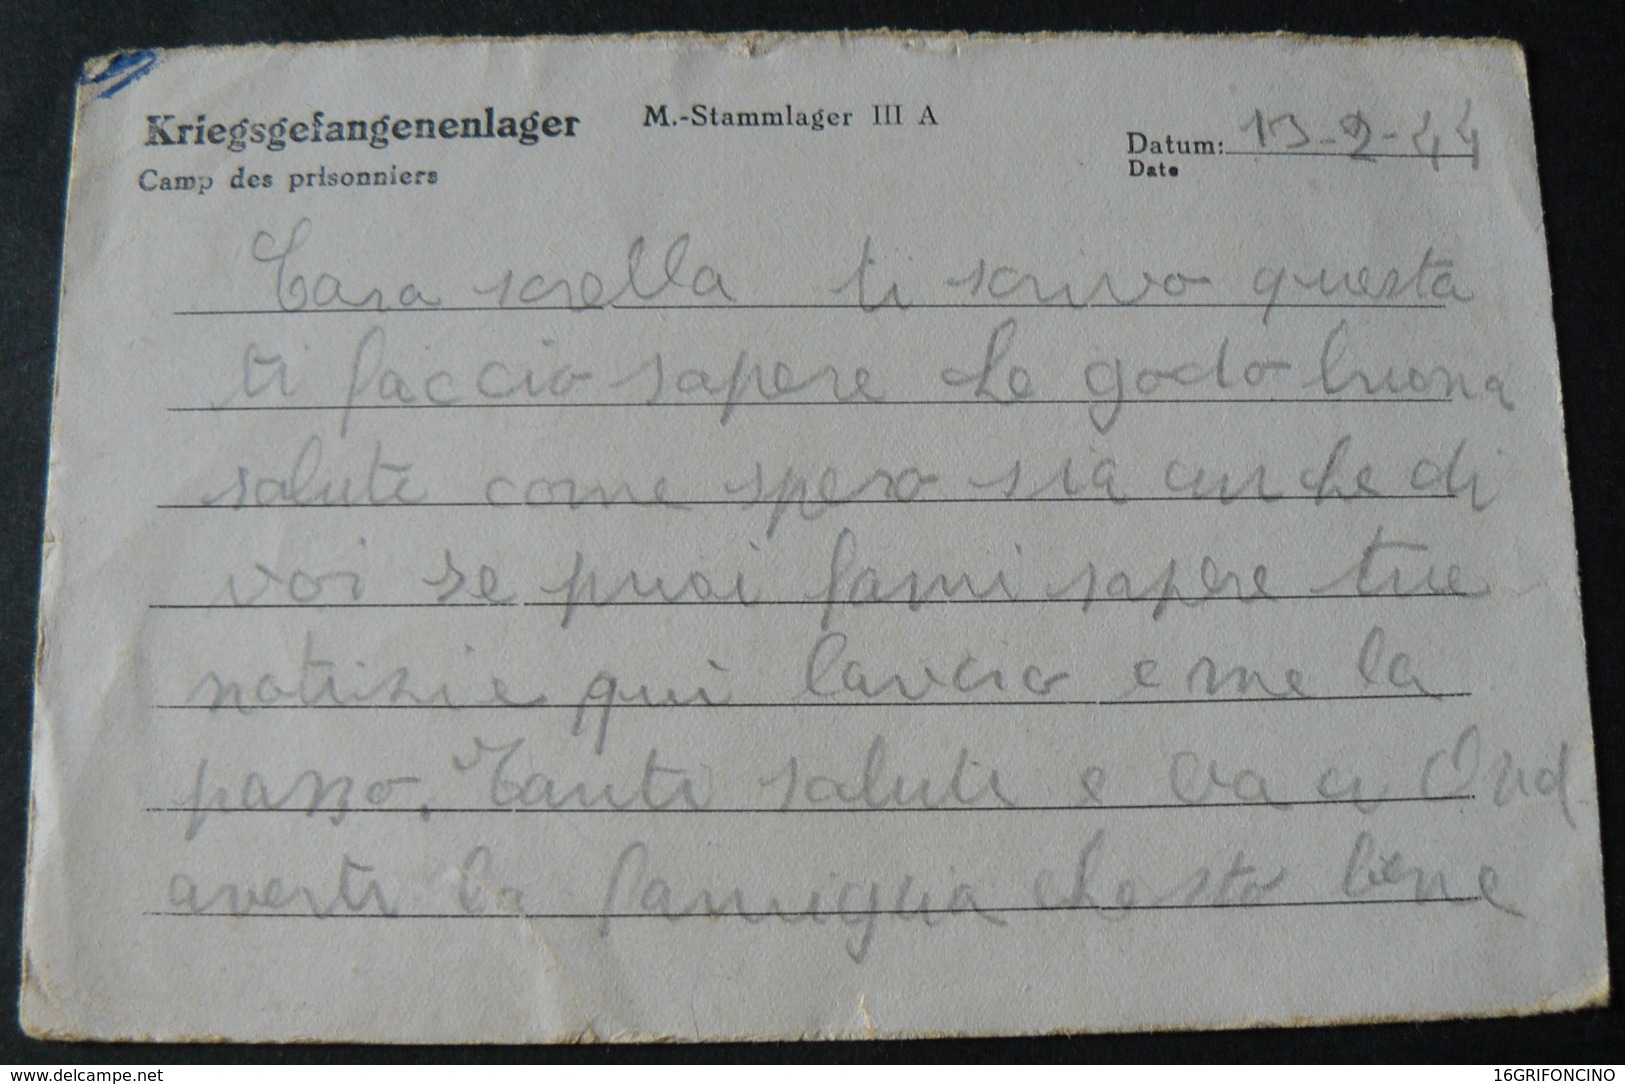 Kriegsgefangenenlager M.-Stammlager III A
Camp des prisonniers
Datum: 13-2-44
Date
Cara sorella ti scrivo questa
ti faccio sapere che godo buona
salute come spero sia anche di
voi se puoi fami sapere tue
notizie qui lavcio e me la
passo. Tanti saluti e va a
averti la famiglia che sto bene
www.delcampe.net
16GRIFONCINO